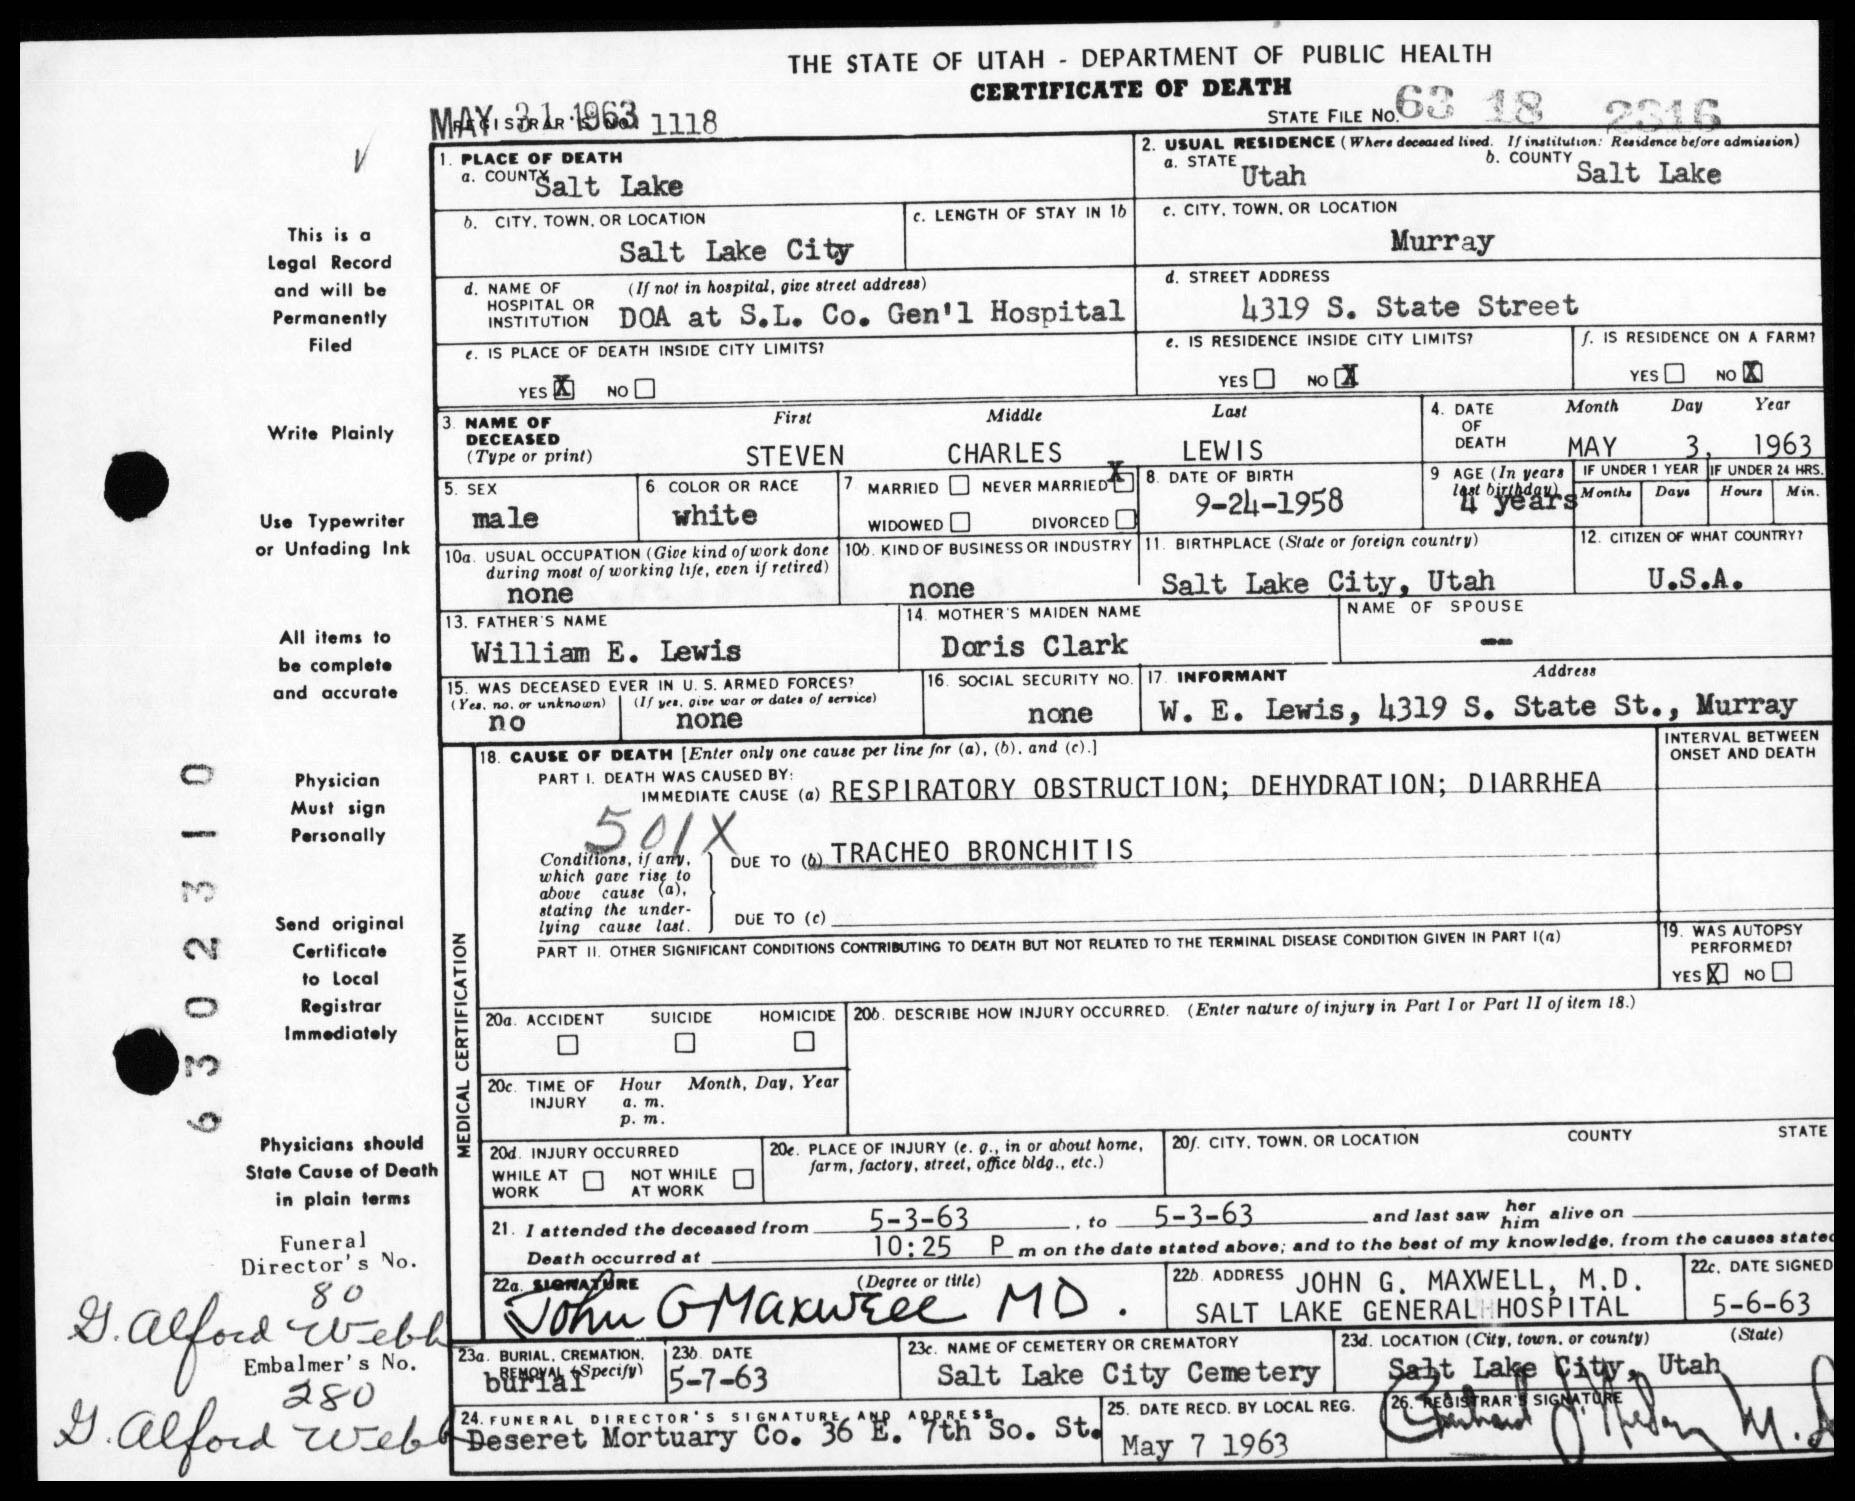 THE STATE OF UTAH - DEPARTMENT OF PUBLIC HEALTH
CERTIFICATE OF DEATH
MAY 31 1963
REGISTRAR'S NO. 1118
STATE FILE NO. 63 18 2316
1. PLACE OF DEATH
a. COUNTY Salt Lake
2. USUAL RESIDENCE (Where deceased lived. If institution: Residence before admission)
a. STATE Utah b. COUNTY Salt Lake
b. CITY, TOWN, OR LOCATION Salt Lake City
c. LENGTH OF STAY IN 1b
c. CITY, TOWN, OR LOCATION Murray
d. NAME OF HOSPITAL OR INSTITUTION (If not in hospital, give street address) DOA at S.L. Co. Gen'l Hospital
d. STREET ADDRESS 4319 S. State Street
e. IS PLACE OF DEATH INSIDE CITY LIMITS?
YES X NO
e. IS RESIDENCE INSIDE CITY LIMITS?
YES NO X
f. IS RESIDENCE ON A FARM?
YES NO X
3. NAME OF DECEASED (Type or print)
First Middle Last
STEVEN CHARLES LEWIS
4. DATE OF DEATH Month Day Year
MAY 3, 1963
5. SEX male
6. COLOR OR RACE white
7. MARRIED NEVER MARRIED X
WIDOWED DIVORCED
8. DATE OF BIRTH 9-24-1958
9. AGE (In years last birthday) 4 years
IF UNDER 1 YEAR Months Days
IF UNDER 24 HRS. Hours Min.
10a. USUAL OCCUPATION (Give kind of work done during most of working life, even if retired) none
10b. KIND OF BUSINESS OR INDUSTRY none
11. BIRTHPLACE (State or foreign country) Salt Lake City, Utah
12. CITIZEN OF WHAT COUNTRY? U.S.A.
13. FATHER'S NAME William E. Lewis
14. MOTHER'S MAIDEN NAME Doris Clark
NAME OF SPOUSE --
15. WAS DECEASED EVER IN U. S. ARMED FORCES?
(Yes, no, or unknown) no
(If yes, give war or dates of service) none
16. SOCIAL SECURITY NO. none
17. INFORMANT Address
W. E. Lewis, 4319 S. State St., Murray
MEDICAL CERTIFICATION
18. CAUSE OF DEATH [Enter only one cause per line for (a), (b), and (c).]
INTERVAL BETWEEN ONSET AND DEATH
PART I. DEATH WAS CAUSED BY:
IMMEDIATE CAUSE (a) RESPIRATORY OBSTRUCTION; DEHYDRATION; DIARRHEA
501X
Conditions, if any, which gave rise to above cause (a), stating the underlying cause last.
DUE TO (b) TRACHEO BRONCHITIS
DUE TO (c)
PART II. OTHER SIGNIFICANT CONDITIONS CONTRIBUTING TO DEATH BUT NOT RELATED TO THE TERMINAL DISEASE CONDITION GIVEN IN PART I(a)
19. WAS AUTOPSY PERFORMED?
YES X NO
20a. ACCIDENT SUICIDE HOMICIDE
20b. DESCRIBE HOW INJURY OCCURRED. (Enter nature of injury in Part I or Part II of item 18.)
20c. TIME OF INJURY Hour Month, Day, Year
a. m.
p. m.
20d. INJURY OCCURRED
WHILE AT WORK NOT WHILE AT WORK
20e. PLACE OF INJURY (e. g., in or about home, farm, factory, street, office bldg., etc.)
20f. CITY, TOWN, OR LOCATION COUNTY STATE
21. I attended the deceased from 5-3-63, to 5-3-63 and last saw her him alive on
Death occurred at 10:25 P m on the date stated above; and to the best of my knowledge, from the causes stated
22a. SIGNATURE (Degree or title)
John G Maxwell MD.
22b. ADDRESS JOHN G. MAXWELL, M.D.
SALT LAKE GENERAL HOSPITAL
22c. DATE SIGNED 5-6-63
23a. BURIAL, CREMATION, REMOVAL (Specify) burial
23b. DATE 5-7-63
23c. NAME OF CEMETERY OR CREMATORY Salt Lake City Cemetery
23d. LOCATION (City, town, or county) (State)
Salt Lake City, Utah
24. FUNERAL DIRECTOR'S SIGNATURE AND ADDRESS
Deseret Mortuary Co. 36 E. 7th So. St.
25. DATE RECD. BY LOCAL REG. May 7 1963
26. REGISTRAR'S SIGNATURE
This is a
Legal Record
and will be
Permanently
Filed
Write Plainly
Use Typewriter
or Unfading Ink
All items to
be complete
and accurate
Physician
Must sign
Personally
Send original
Certificate
to Local
Registrar
Immediately
Physicians should
State Cause of Death
in plain terms
Funeral
Director's No.
80
G. Alford Webb
Embalmer's No.
280
G. Alford Webb
63 02310